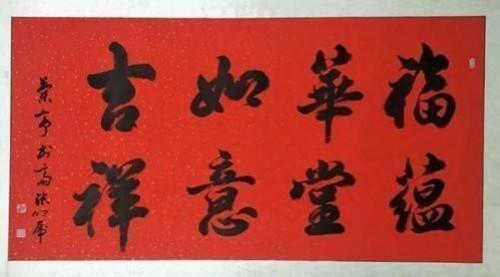 福蕴
華堂
如意
吉祥